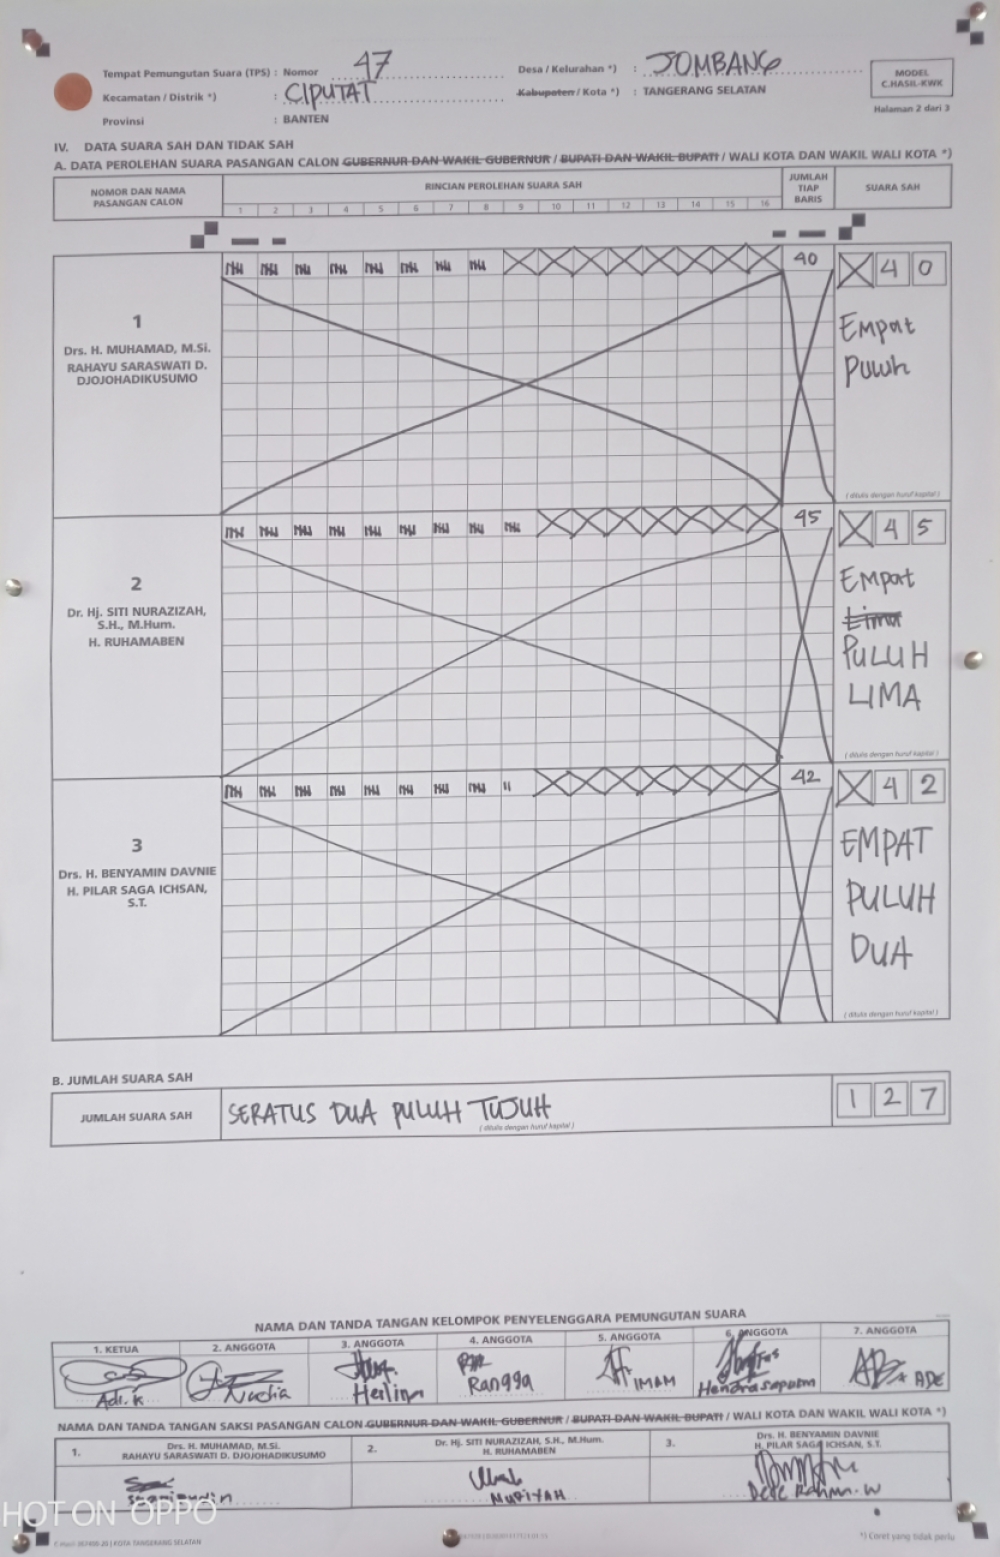 Tempat Pemungutan Suara (TPS) : Nomor 47 Desa / Kelurahan *) : JOMBANG
Kecamatan / Distrik *) : CIPUTAT Kabupaten / Kota *) : TANGERANG SELATAN
Provinsi : BANTEN
MODEL
C.HASIL-KWK
Halaman 2 dari 3
IV. DATA SUARA SAH DAN TIDAK SAH
A. DATA PEROLEHAN SUARA PASANGAN CALON GUBERNUR DAN WAKIL GUBERNUR / BUPATI DAN WAKIL BUPATI / WALI KOTA DAN WAKIL WALI KOTA *)
NOMOR DAN NAMA
PASANGAN CALON
RINCIAN PEROLEHAN SUARA SAH
1 2 3 4 5 6 7 8 9 10 11 12 13 14 15 16
JUMLAH
TIAP
BARIS
SUARA SAH
1
Drs. H. MUHAMAD, M.Si.
RAHAYU SARASWATI D.
DJOJOHADIKUSUMO
40
X 4 0
Empat
Puluh
( ditulis dengan huruf kapital )
2
Dr. Hj. SITI NURAZIZAH,
S.H., M.Hum.
H. RUHAMABEN
45
X 4 5
EMPat
Lima
PULUH
LIMA
( ditulis dengan huruf kapital )
3
Drs. H. BENYAMIN DAVNIE
H. PILAR SAGA ICHSAN,
S.T.
42
X 4 2
EMPAT
PULUH
DUA
( ditulis dengan huruf kapital )
B. JUMLAH SUARA SAH
JUMLAH SUARA SAH SERATUS DUA PULUH TUJUH 1 2 7
( ditulis dengan huruf kapital )
NAMA DAN TANDA TANGAN KELOMPOK PENYELENGGARA PEMUNGUTAN SUARA
1. KETUA 2. ANGGOTA 3. ANGGOTA 4. ANGGOTA 5. ANGGOTA 6. ANGGOTA 7. ANGGOTA
Adi.K Nadia Herlina Rangga IMAM Hendra Saputra ADE
NAMA DAN TANDA TANGAN SAKSI PASANGAN CALON GUBERNUR DAN WAKIL GUBERNUR / BUPATI DAN WAKIL BUPATI / WALI KOTA DAN WAKIL WALI KOTA *)
1. Drs. H. MUHAMAD, M.Si.
RAHAYU SARASWATI D. DJOJOHADIKUSUMO
2. Dr. Hj. SITI NURAZIZAH, S.H., M.Hum.
H. RUHAMABEN
3. Drs. H. BENYAMIN DAVNIE
H. PILAR SAGA ICHSAN, S.T.
MURIYAH
HOT ON OPPO
KOTA TANGERANG SELATAN
*) Coret yang tidak perlu